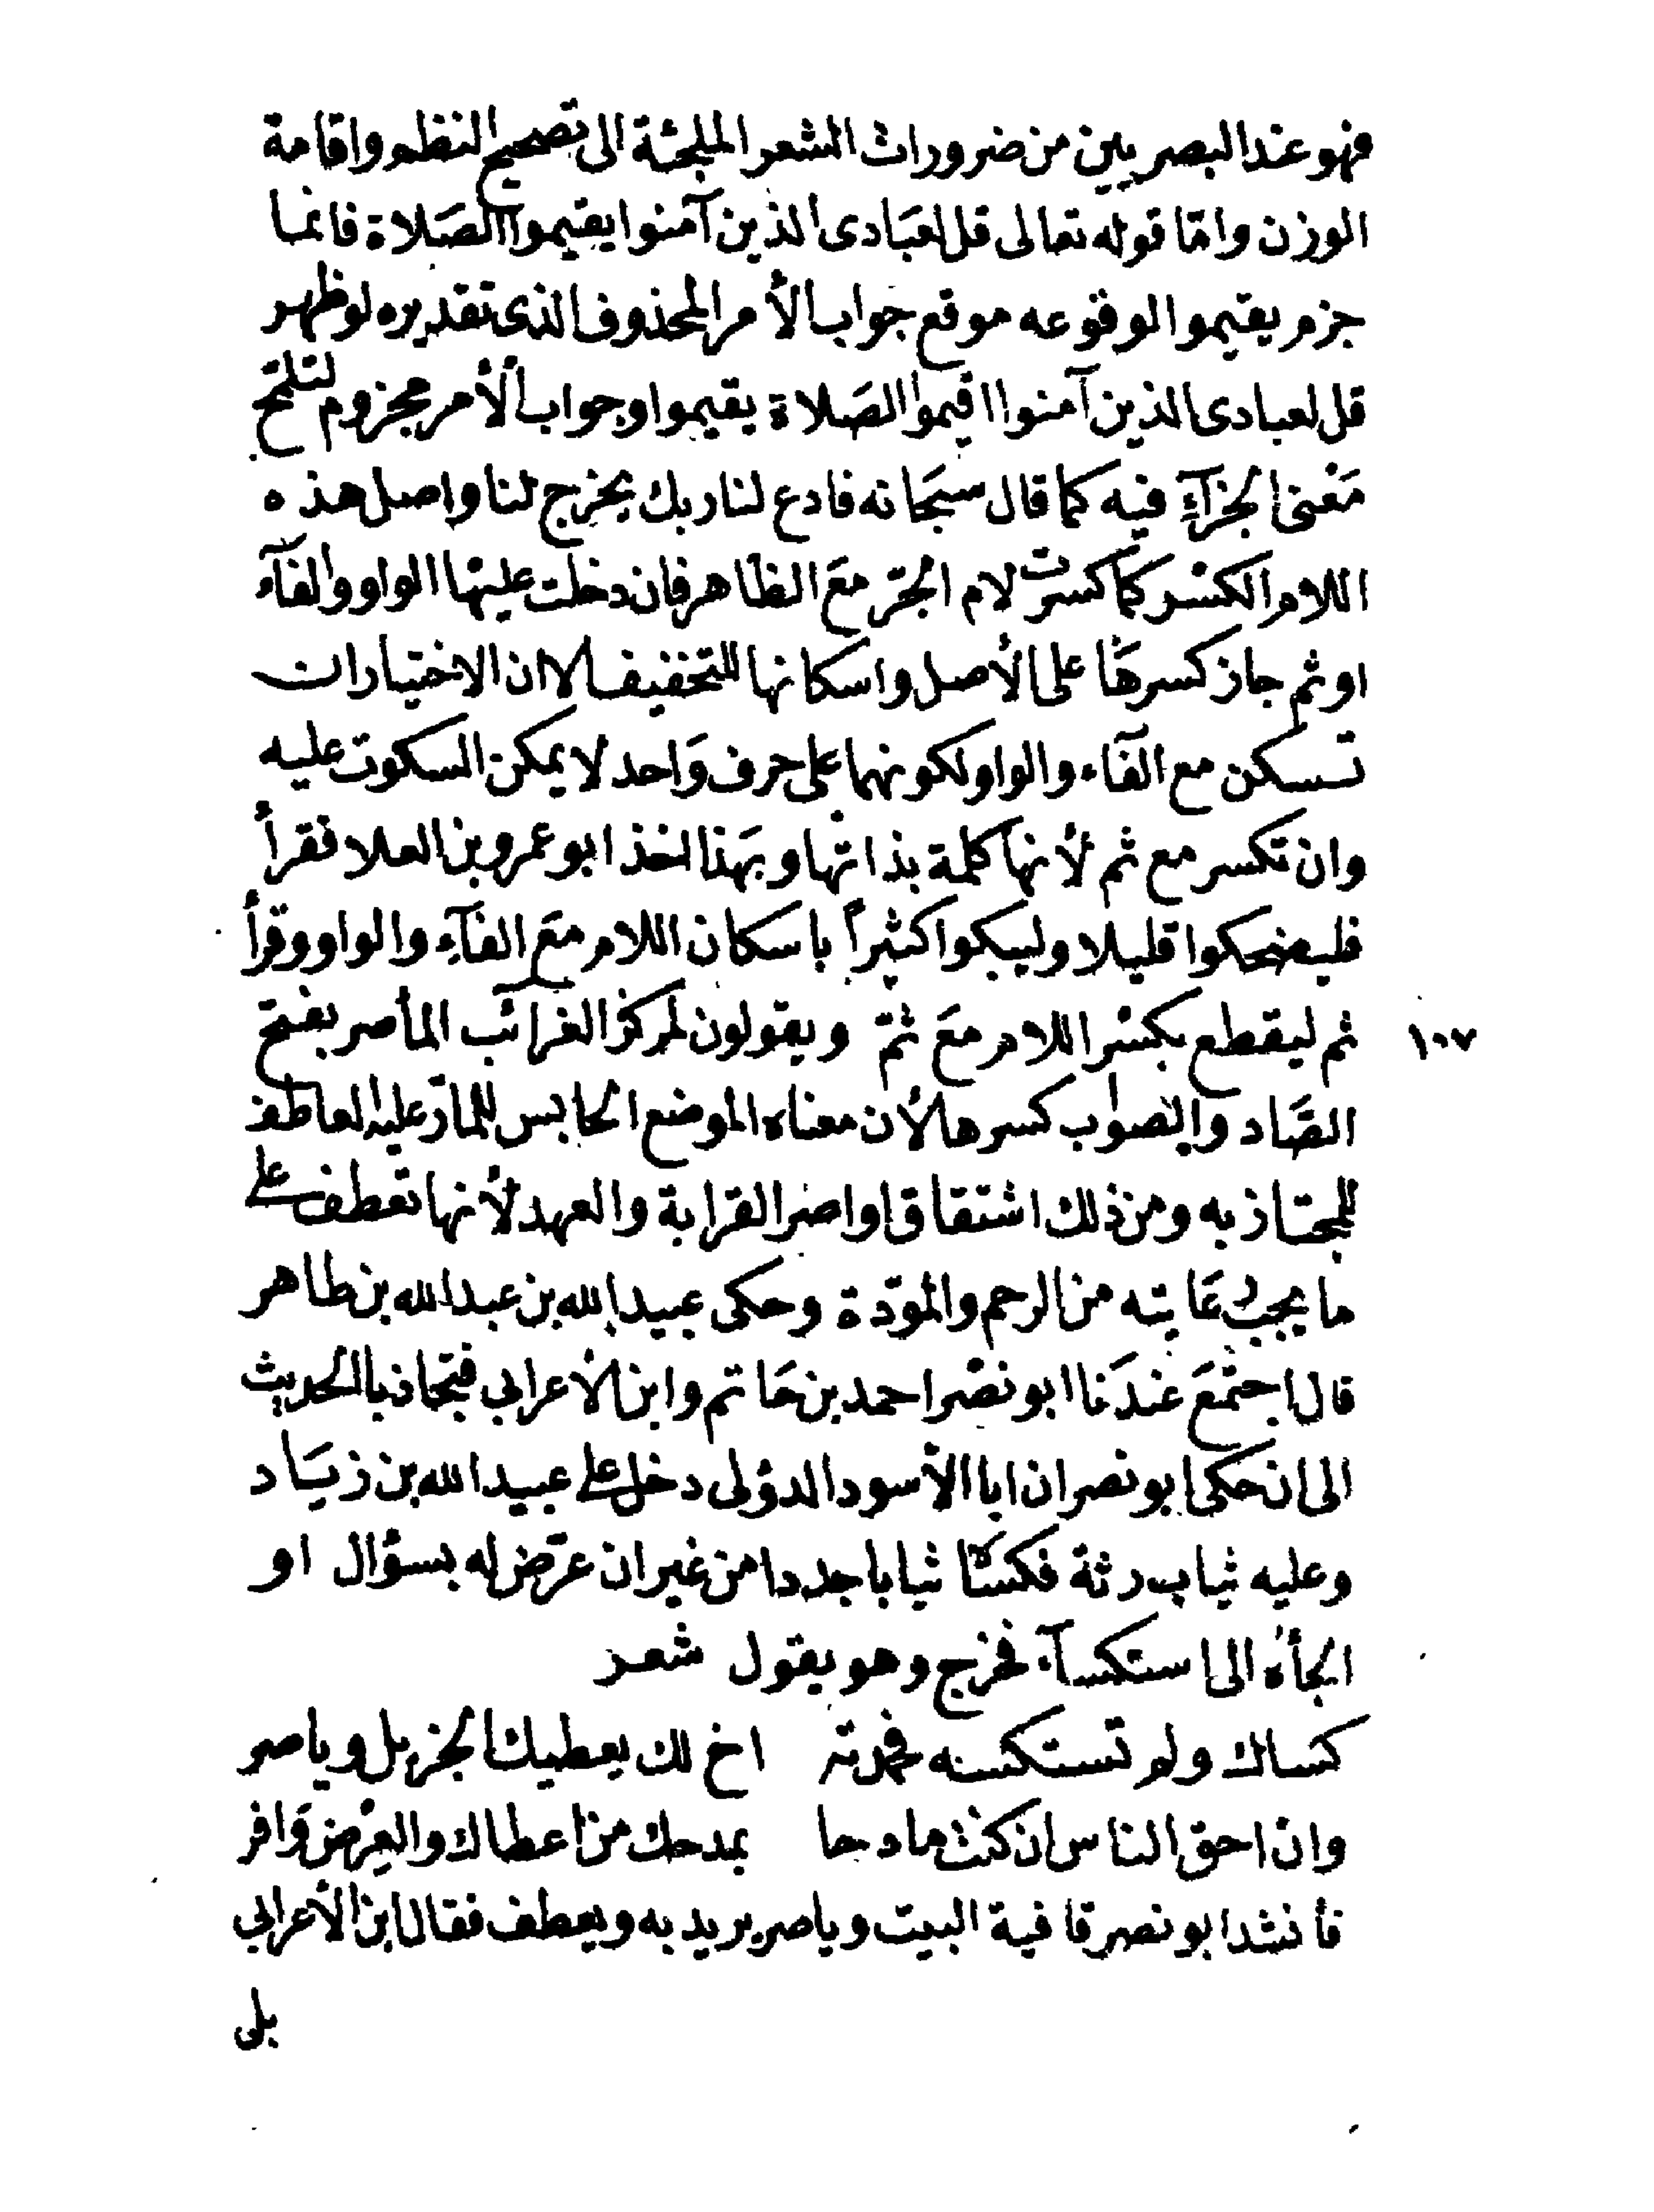 فهو عند البصريين من ضرورات الشعر الملجئة الى تصحيح النظم واقامة
الوزن وامّا قوله تعالى قل لعبَادى الذين آمنوا يقيموا الصَلاة فانما
جزم يقيموا لوقوعه موقع جواب الأمر المحذوف الذى تقديره لو ظهر
قل لعبادى الذين آمنوا اقيموا الصَلاة يقيموا وجواب الأمر مجزوم لتلمح
مَعْنى الجزآءِ فيه كما قال سبحَانه فادع لنا ربك يخرج لنا واصل هذه
اللام الكسْر كما كسرت لام الجرّ معَ الظاهر فان دخلت عليْها الواو والفآء
او ثم جاز كسرهَا على الأصل واسكانها للتخفيف الا ان الاختيار ان
تسكن مع الفآء والواو لكونهما على حرف وَاحد لا يمكن السكوت عليه
وان تكسر مع ثم لأنها كلمة بذاتها وبهَذا اخذ ابو عمرو بن العلا فقرأ
فليضحكوا قليلا وليبكوا كثيراً باسكان اللام معَ الفآءِ والواو وقرأ
ثم ليقطع بكسْر اللام معَ ثمّ ويقولون لمركز الضرائب المأصر بفتح ١٠٧
الصَّاد والصواب كسرها لأن معناه الموضع الحابس للمارّ عليه العاطف
للمجتاز به ومن ذلك اشتقاق اواصر القرابة والعهد لأنها تعطف على
ما يجب رعَايته من الرحم والموَدّة وحكى عبيد الله بن عبد الله بن طاهر
قال اجتمَعَ عندَنا ابو نصْر احمد بن حَاتم وابن الأعرابي فتجاذبا الحديث
الى ان حكى ابو نصر ان ابا الأسود الدؤلى دخل على عبيد الله بن زيَاد
وعليه ثياب رثة فكسَاه ثيابا جددا من غير ان عرّض له بسؤال او
الجأهُ الى استكسآء فخرج وهو يقول شعر
كساك ولم تستكسه فحمدته اخ لك يعطيك الجزيل وياصر
وان احق الناس ان كنت مادحا بمدحك من اعطاك والعِرْض وَافر
فأنشد ابو نصر قافية البيت وياصر يريد به ويعطف فقال ابن الأعرابي
بل